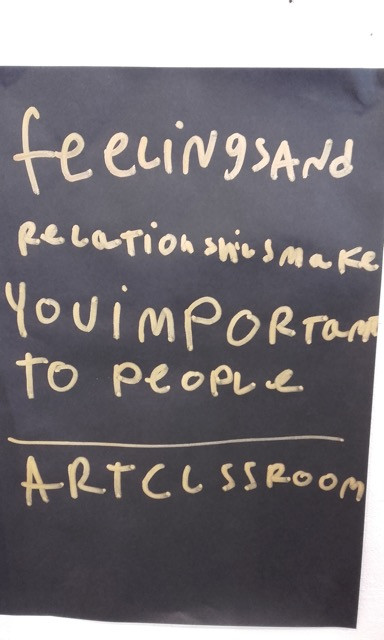 feeLiNgsANd
ReLaTionshipsmake
YOUiMPORTanT
TO PeOPLe
ARTCLSSROOM